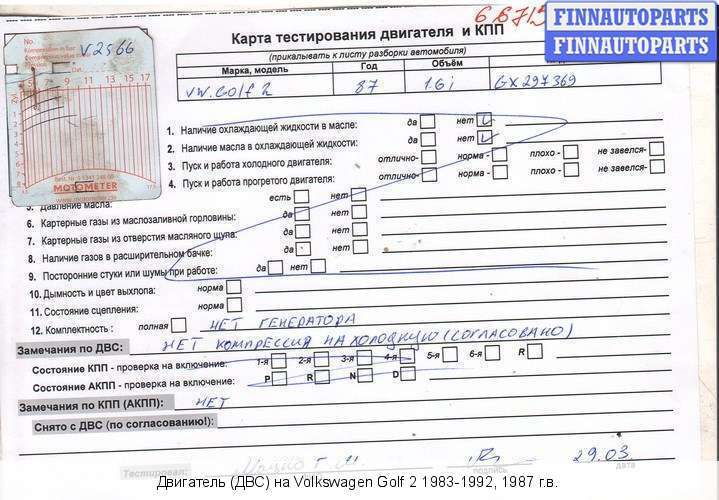 6 6715
FINNAUTOPARTS
FINNAUTOPARTS
No.
V2566
7 9 11 13 15 17
MOTOMETER
www.motometer.de
Карта тестирования двигателя и КПП
(прикалывать к листу разборки автомобиля)
Марка, модель Год Объём
VW. Golf 2 87 1.6 i GX297369
1. Наличие охлаждающей жидкости в масле: да нет
2. Наличие масла в охлаждающей жидкости: да нет
3. Пуск и работа холодного двигателя: отлично- норма - плохо - не завелся-
4. Пуск и работа прогретого двигателя: отлично- норма - плохо - не завелся-
5. Давление масла: есть нет
6. Картерные газы из маслозаливной горловины: да нет
7. Картерные газы из отверстия масляного щупа: да нет
8. Наличие газов в расширительном бачке: да нет
9. Посторонние стуки или шумы при работе: да нет
10. Дымность и цвет выхлопа: норма
11. Состояние сцепления: норма
12. Комплектность : полная НЕТ ГЕНЕРАТОРА
Замечания по ДВС: НЕТ КОМПРЕССИЯ НА ХОЛОДНУЮ (СОГЛАСОВАНО)
Состояние КПП - проверка на включение: 1-я 2-я 3-я 4-я 5-я 6-я R
Состояние АКПП - проверка на включение: P R N D
Замечания по КПП (АКПП): НЕТ
Снято с ДВС (по согласованию!):
29.03
Тестировал: подпись дата
Двигатель (ДВС) на Volkswagen Golf 2 1983-1992, 1987 г.в.